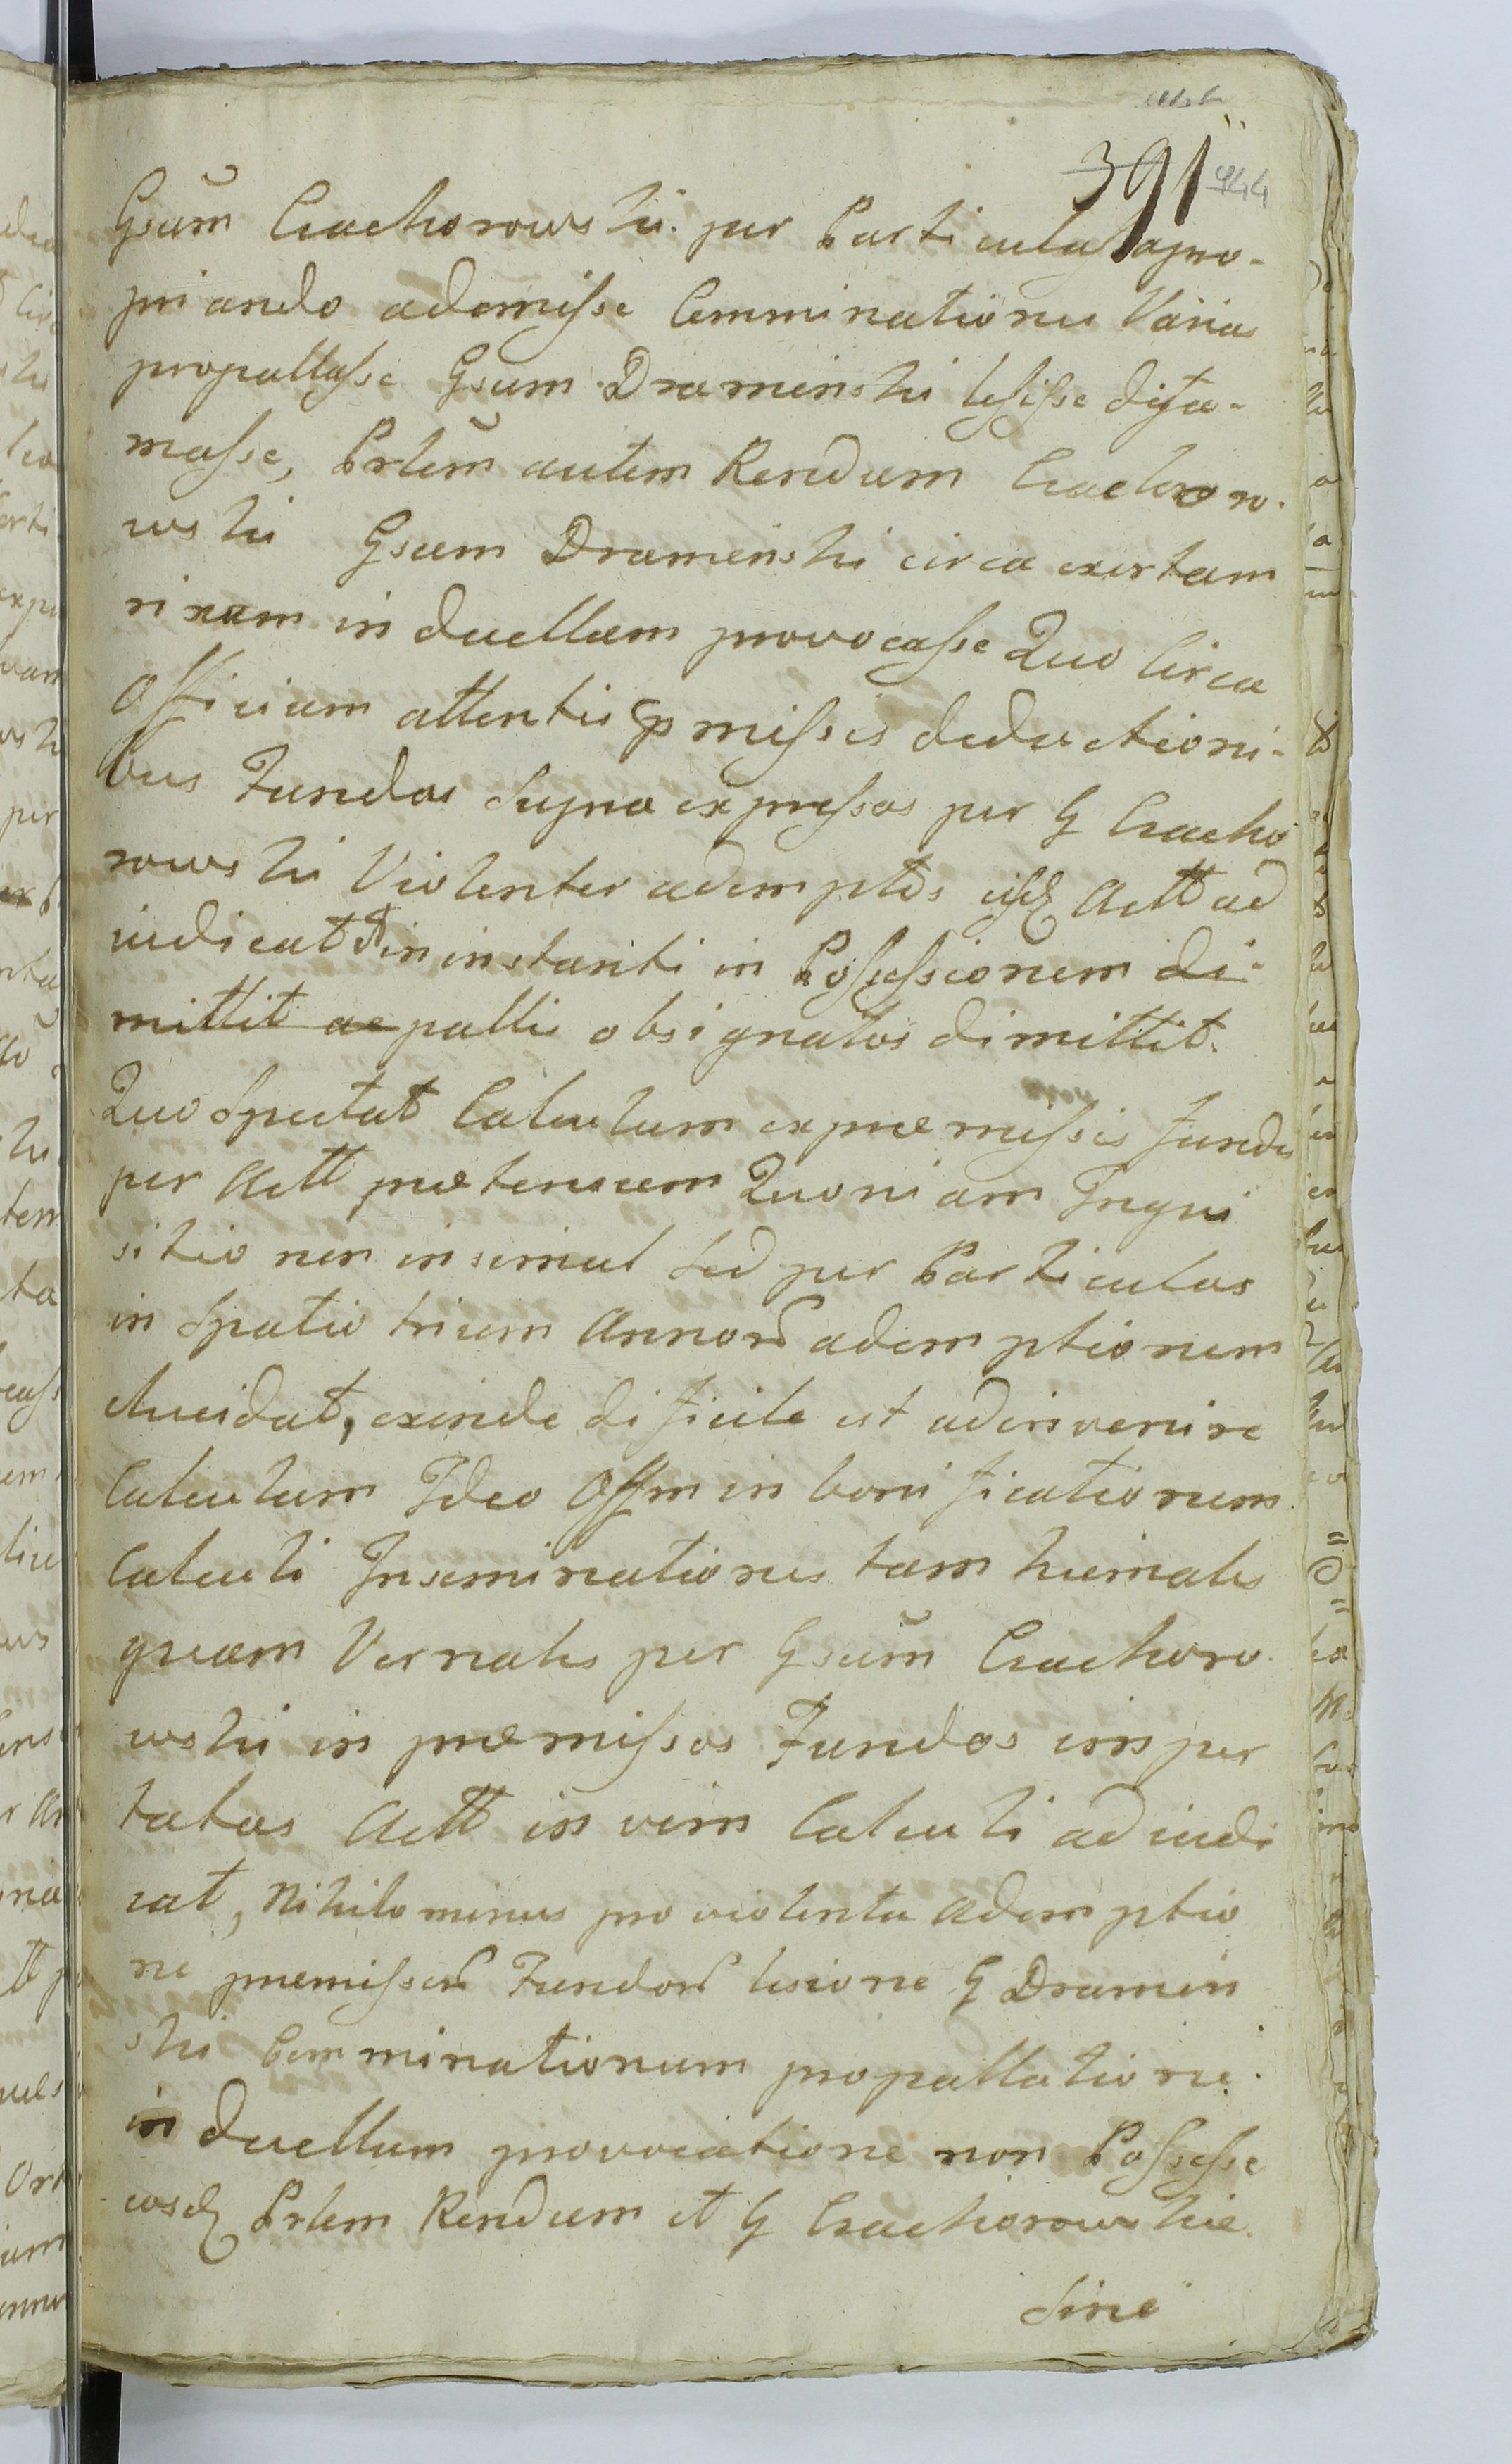 391 444
Gsum̃ Czachorowski per Particulas apro-
priando ademisse Comminationes Varias
propallasse Gsum Draminski lesisse difa-
masse, Prlem̃ autem Rendum Czachoro-
wski Gsum Draminski circa exortam
rixam in duellum provocasse Quo Circa
Officium attentis pmissis deductioni-
bus Fundos Supra expressos per G Czacho
rowski Violenter ademptos Actt ad
iudicat et in instanti in Possessionem di-
mittit ac pallis obsignatos dimittit.
Quo Spectat Calculum ex præmissis Fundis
per Actt prætensum Quoniam Inqui
sitio non insimul Sed per Particulas
in Spatio trium Annor ademptionem
elucidat, exinde dificile est adinvenire
Calculum Ideo Offm in bonificationem
Calculi Inseminationes tam hiemales
quam Vernales per Gsum̃ Czachoro-
wski in præmissos Fundos imper
tatas Actt in vim Calculi ad iudi
cat, Nihilominus pro violenta Ademptio
ne præmissor Fundor lesione G Dramin
ski Comminationum propallatione
in duellum provocatione non Possesse
eosd Prlem Rendum et G Czachorowskie
Sine